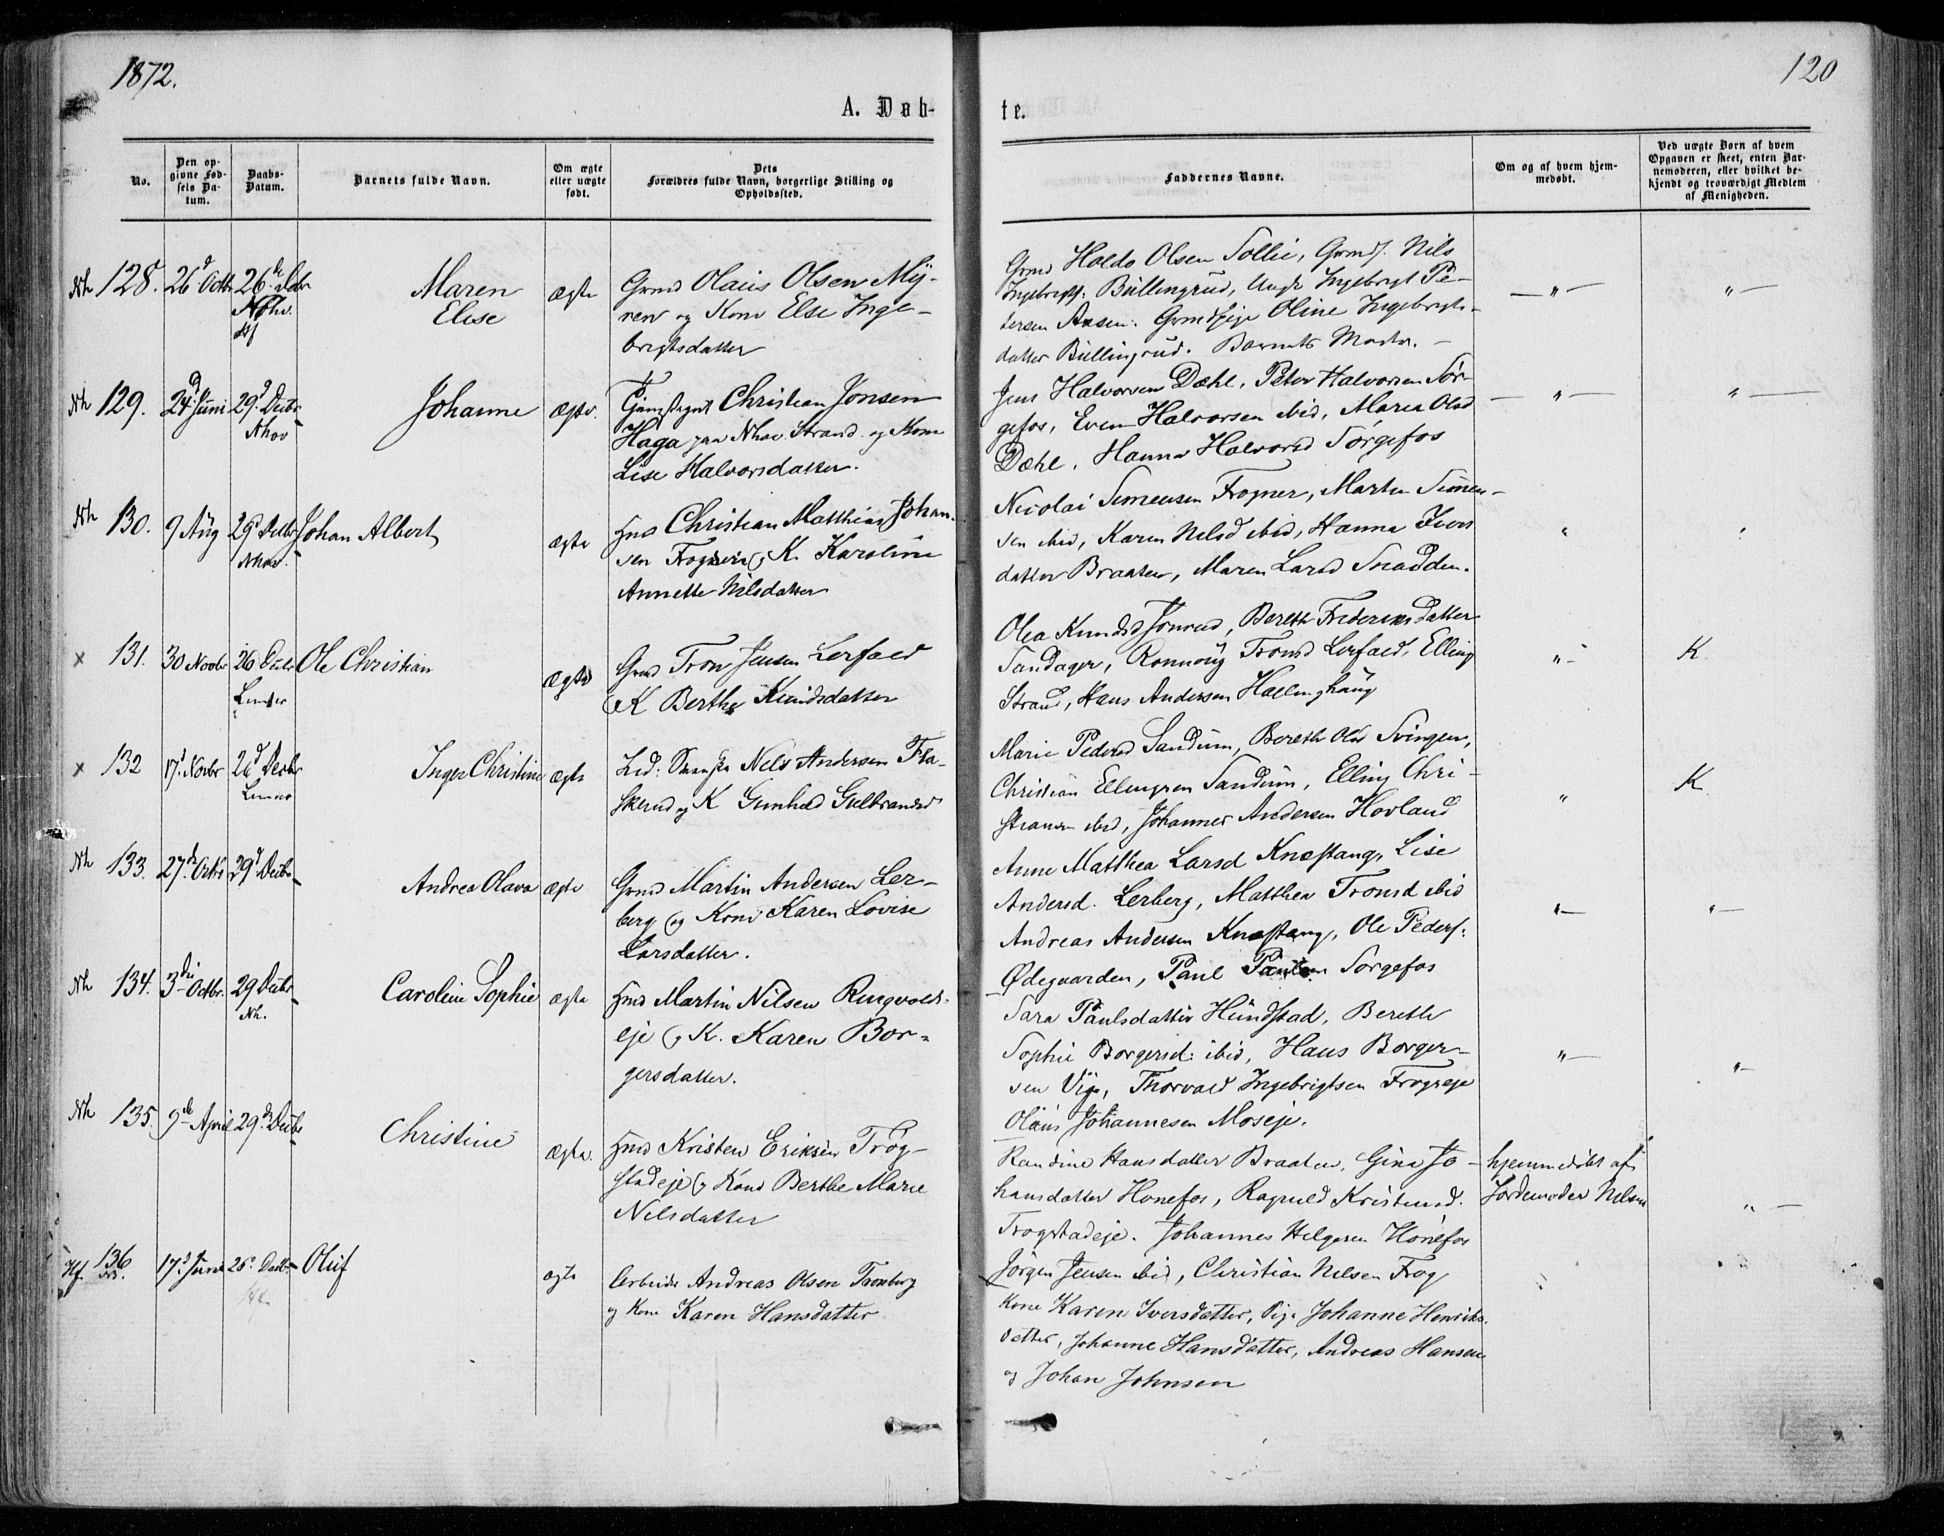 1872.
120
A. Døb-
te.
No.
Den op-
givne Fød-
sels Da-
tum.
Daabs-
Datum.
Barnets fulde Navn.
Om ægte
eller uægte
født.
Dets
Forældres fulde Navn, borgerlige Stilling og
Opholdssted.
Faddernes Navne.
Om og af hvem hjem-
medøbt.
Ved uægte Børn af hvem
Opgaven er skeet, enten Bar-
nemoderen, eller hvilket be-
kjendt og troværdigt Medlem
af Menigheden.
Nh 128. 26 Octb 26 Debr
Nhov.
Maren
Elise
ægte
Grmd Olaus Olsen My-
ren og Kone Else Inge-
brigtsdatter
Grmd Holdo Olsen Sollie, Grmds. Nils
Ingebrigts. Bullingrud, Ungk Ingebrigt Pe-
dersen Aasen. Grmdpige Oline Ingebrigts-
datter Bullingrud. Barnets Moder.
Nh 129. 24 Juni 29 Decbr
Nhov
Johanne
ægte.
Christian Jonsen
Haga paa Nhov. Strand og Kone
Lise Halvorsdatter.
Jens Halvorsen Dæhl, Peter Halvorsen Sør-
gefos, Even Halvorsen ibid, Maria Olsd
Dæhl, Hanna Halvorsd Sørgefos
Nh 130. 9 Aug 26 Decbr
Nhov.
Johan Albert
ægte
Hmd Christian Matthias Johan-
sen Frogner og K. Karoline
Annette Nilsdatter
Nicolai Simensen Frogner, Martin Simen-
sen ibid, Karen Nilsd ibid, Hanna Ivers
datter Braaten, Maren Larsd Snadden.
x 131. 30 Novbr 26 Decbr
Lunder
Ole Christian
ægte
Grmd Tron Jensen Lerfald
og K Berthe Knudsdatter
Olea Knudsd Jonrud, Berethe Frederiks Datter
Sandager, Ronnoug Tronsd Lerfald, Elling
Strand, Hans Andersen Hallinghaug
K.
x 132 17 Novbr 26 Decbr
Lunder
Inger Christine
ægte
Nels Andersen Fla-
skerud og K Gunhild Gulbrandsd
Marie Pedersd Sandum, Berethe Olsd Svingen,
Christian Ellingsen Sandum, Elling Chri-
stiansen ibid, Johannes Andersen Hovland
K.
Nh 133. 27 Octbr 29 Decbr
Andrea Olava
ægte
Grmd Martin Andersen Ler-
berg og Kone Karen Lovise
Larsdatter.
Anne Matthea Larsd Knæstang, Lise
Andersd. Lerberg, Matthea Tronsd ibid
Andreas Andersen Knæstang, Ole Peders.
Ødegaarden, Paul Paulsen Sørgefos
Nh 134. 3die Octbr. 29 Decbr
Nh.
Caroline Sophie
ægte
Hmd Martin Nilsen Ringvold-
eje og K. Karen Bor-
gersdatter.
Sara Paulsdatter Hundstad, Berethe
Sophie Borgersd. ibid, Hans Borger-
sen Vig, Thorvald Ingebrigtsen Frogseje
Olaus Johannesen Moseje.
Nh 135. 9de April 29 Decbr
Christine
ægte.
Hmd Kristen Eriksen Trøg-
stadeje og Kone Berthe Marie
Nilsdatter
Randine Hansdatter Braaten, Gina Jo-
hansdatter Hønefos, Ragnild Kristensd.
Trøgstadeje. Johannes Helgesen Hønefos
Jørgen Jensen ibid, Christian Nilsen Frog
hjemmedøbt af
Jordemoder Nilsen
Hf. 136. 17 Juni 26 Decbr
Oluf
ægte
Arbeider Andreas Olsen Tronberg
og Kone Karen Hansdatter
Kone Karen Iversdatter, Pige Johanne Henriks-
datter, Johanne Hansdatter, Andreas Hansen
og Johan Johnsen